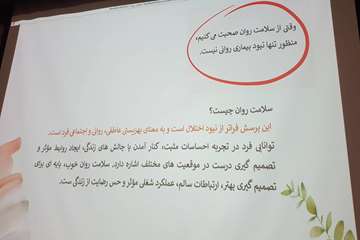 وقتی از سلامت روان صحبت می کنیم،
منظور تنها نبود بیماری روانی نیست.
سلامت روان چیست؟
این پرسش فراتر از نبود اختلال است و به معنای بهزیستی عاطفی، روانی و اجتماعی فرد است.
توانایی فرد در تجربه احساسات مثبت، کنار آمدن با چالش های زندگی، ایجاد روابط مؤثر و
تصمیم گیری درست در موقعیت های مختلف اشاره دارد. سلامت روان خوب، پایه ای برای
تصمیم گیری بهتر، ارتباطات سالم، عملکرد شغلی مؤثر و حس رضایت از زندگی ست.